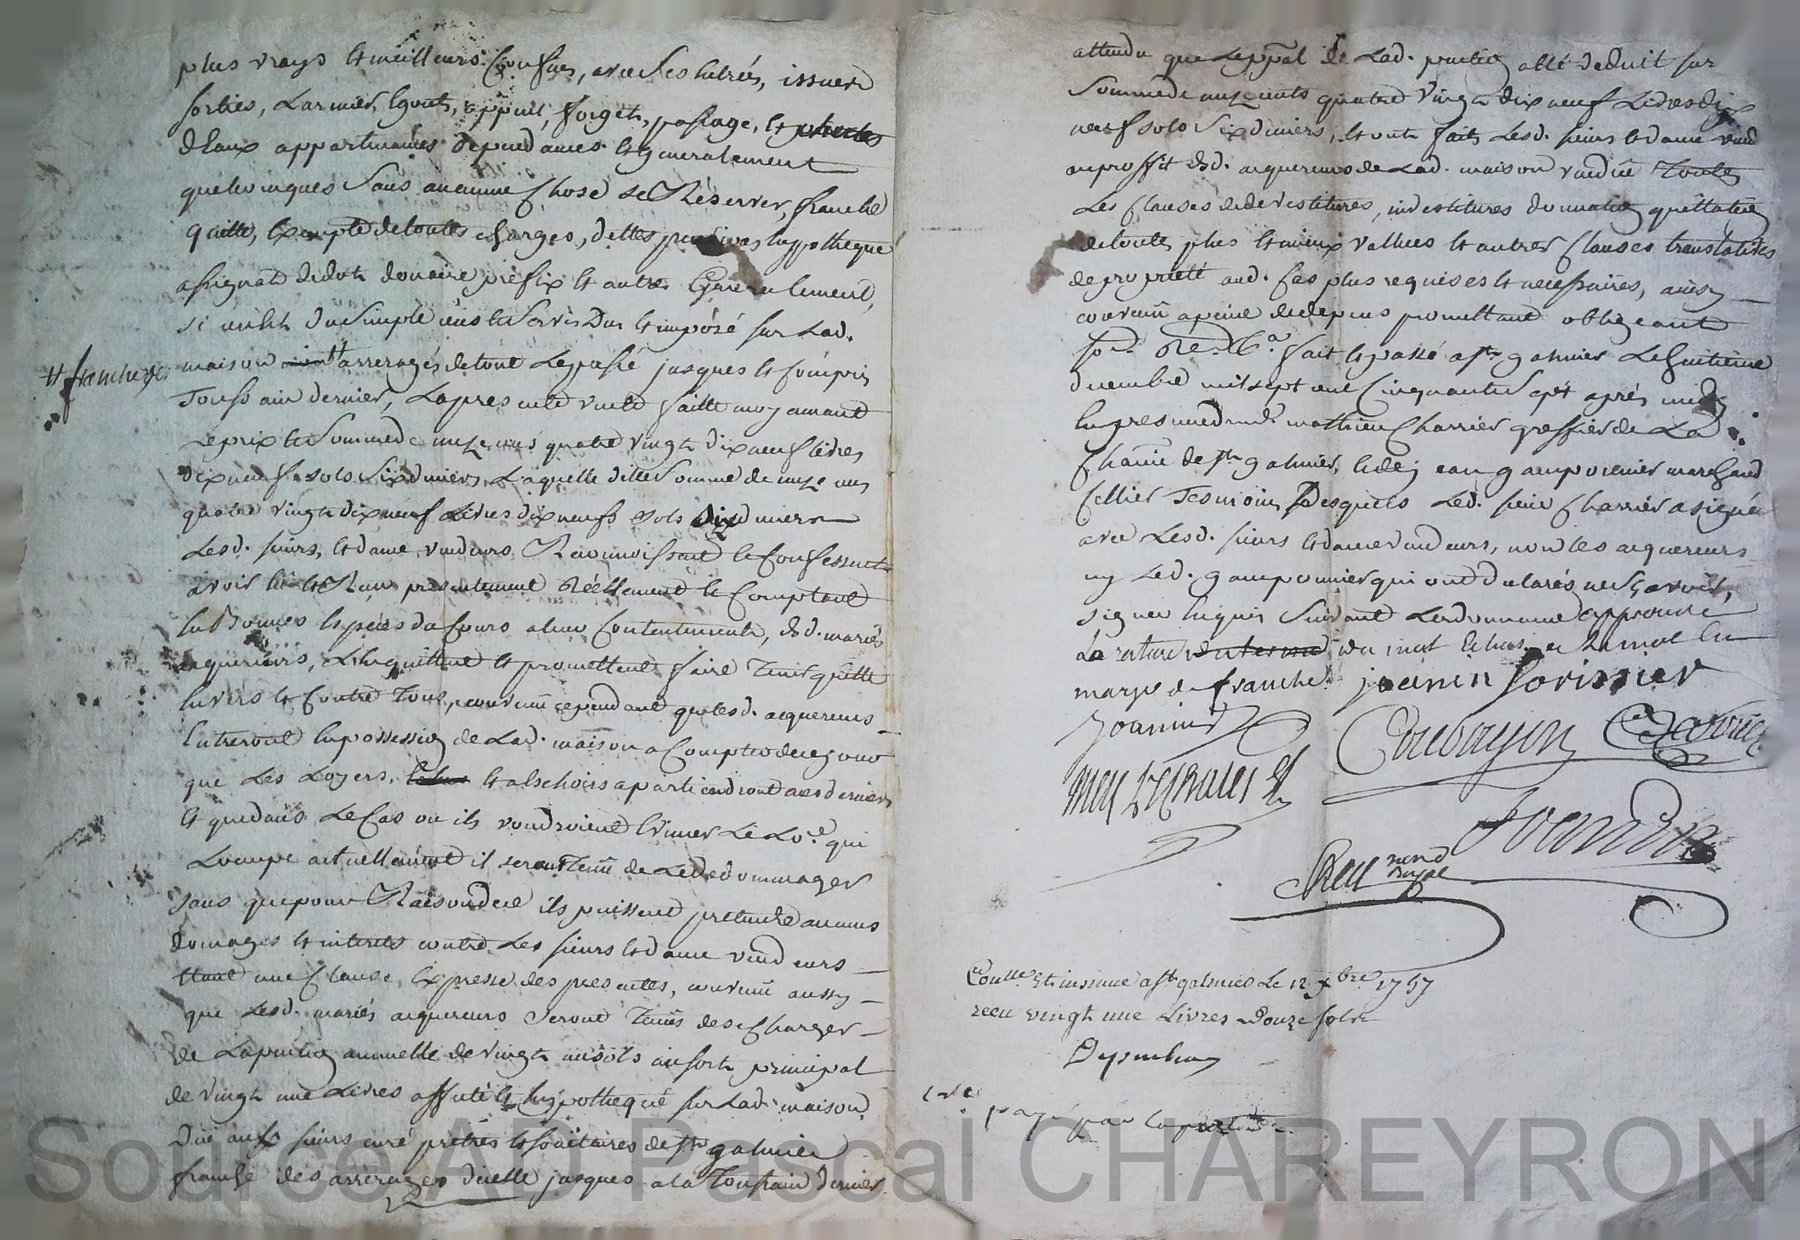 plus vrays et meilleurs Confins, avec ses entrées, issues
sorties, Larmier, Egouts, appuit, forgets, passage, et
d'Eaux appartenances dependances et generalement
quelconques sans aucune Chose se Réserver, franche
quitte, Exempte de toutes charges, dettes hypotheque
assignat de dot, douaire prefix et autre Generalement,
si ce n'est du simple cens et servis Dus et imposé sur Lad.
# franche
maison # arrerages de tout Le passé jusques et Compris
Toussain dernier, La presente vente faitte moyenant
Le prix et somme de onze cens quatre vingt dix neuf livres
dix neuf sols Six deniers Laquelle ditte Somme de onze cens
quatre vingt dix neuf Livres dix neufs sols six deniers
Lesd. sieurs, et dame vendeurs Reconnoissent et Confessent
avoir eu et Reçu présentement Réellement et Comptant
En Bonnes Especes du Cours a leur Contentement, desd. mariés
acquereurs, Les quittent et promettent faire Tenir quitte
Envers et Contre Tous, convenu cependant que lesd. acquereurs
Entreront En possession de Lad. maison a Compter de ce jour
que Les Loyers, et alschoirs apartiendront aces derniers
et que dans Le Cas ou ils voudroient Evincer Le Lo.re qui
L'occupe actuellement il seront Tenu de Le dedommager
sans que pour Raison de ce ils puissent pretendre aucuns
domages et interets contre Les sieurs et dame vendeurs
etant une Clause Expresse des presentes, convenu aussy
que Lesd. mariés acquereurs seront Tenus de se Charger
de La pention annuelle de vingt un sols au sort principal
de vingt une Livres affecté et hypothequé sur Lad. maison
Due aux sieurs curé prêtres et societaires de St galmier
franche des arrerages d'icelle jusques a la Toussain dernier
attendu que Le ppal de Lad. pention a été deduit sur
Somme de onze cents quatre vingt dix neuf Livres dix
neuf sols Six deniers, et ont faits Lesd. sieurs et dame vend
au proffit desd. acquereurs de Lad. maison vendue Toutes
Les Clauses de devestitures, investitures donnation quittation
de toutes plus et mieux vallues et autres Clauses translatives
de proprieté aud. Cas plus requises et necessaires, ainsy
convenu a peine de depens promettant obligeant
fait et passé a St galmier Le huitieme
decembre mil sept cent Cinquante Sept après midy
En presence de mr mathieu Charrier greffier de La
Chatnie de St galmier, et de jean gamponnier marchand
sellier Tesmoins Desquels Led. sieur Charrier a signé
avec Lesd. sieurs et dame vendeurs, non les acquereurs
ny Led. gamponnier qui ont declarés ne Sçavoir,
signer Enquis Suivant Lordonnance approuvé
La rature du mot Echus et Le mot En
marge de franche. jeanin forissier
Joannin Coubayon Chavrier
Joandon
Chen nond
Royal
Conllé Et insinué a St galmier Le 12 xbre 1757
recu vingt une Livres Douze sols
payé par
Source AD Pascal CHAREYRON